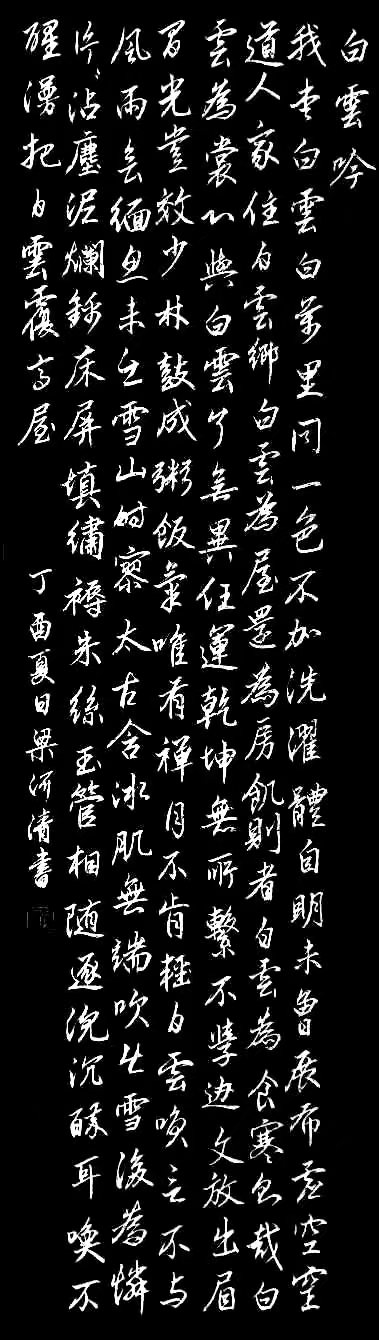 白雲吟
我白雲白萬里同一色不加洗濯體自明未曾展布虛空窒
道人家住白雲鄉白雲為屋還為房飢則煮白雲為食寒則裁白
雲為裳心與白雲了無異任運乾坤無所繫不學迦文放出眉
間光豈效少林鼓成粥飯氣唯有禪月不肯輕白雲喚不与
風雨會緬思未上雪山時寥太古含冰肌無端吹出雪後為憐
片片沾塵泥爛錦床屏填繡褥朱絲玉管相随逐沉醉耳喚不
醒漫把白雲覆高屋
丁酉夏日梁清書